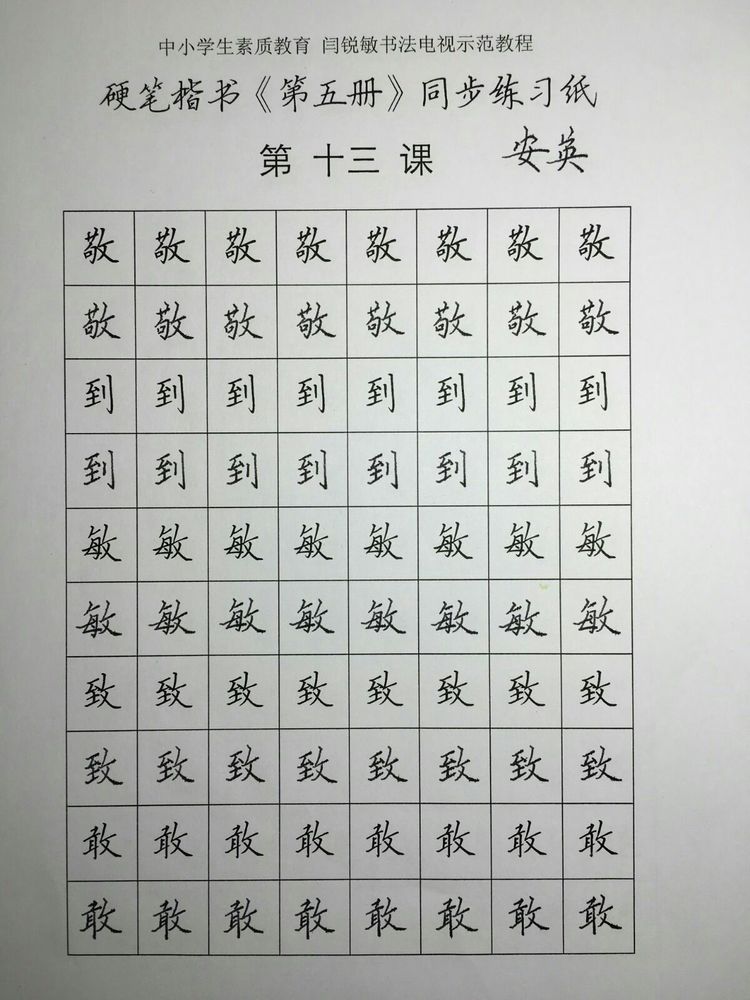 中小学生素质教育 闫锐敏书法电视示范教程
硬笔楷书《第五册》同步练习纸
第 十三 课 安英
敬 敬 敬 敬 敬 敬 敬 敬
敬 敬 敬 敬 敬 敬 敬 敬
到 到 到 到 到 到 到 到
到 到 到 到 到 到 到 到
敏 敏 敏 敏 敏 敏 敏 敏
敏 敏 敏 敏 敏 敏 敏 敏
致 致 致 致 致 致 致 致
致 致 致 致 致 致 致 致
敢 敢 敢 敢 敢 敢 敢 敢
敢 敢 敢 敢 敢 敢 敢 敢